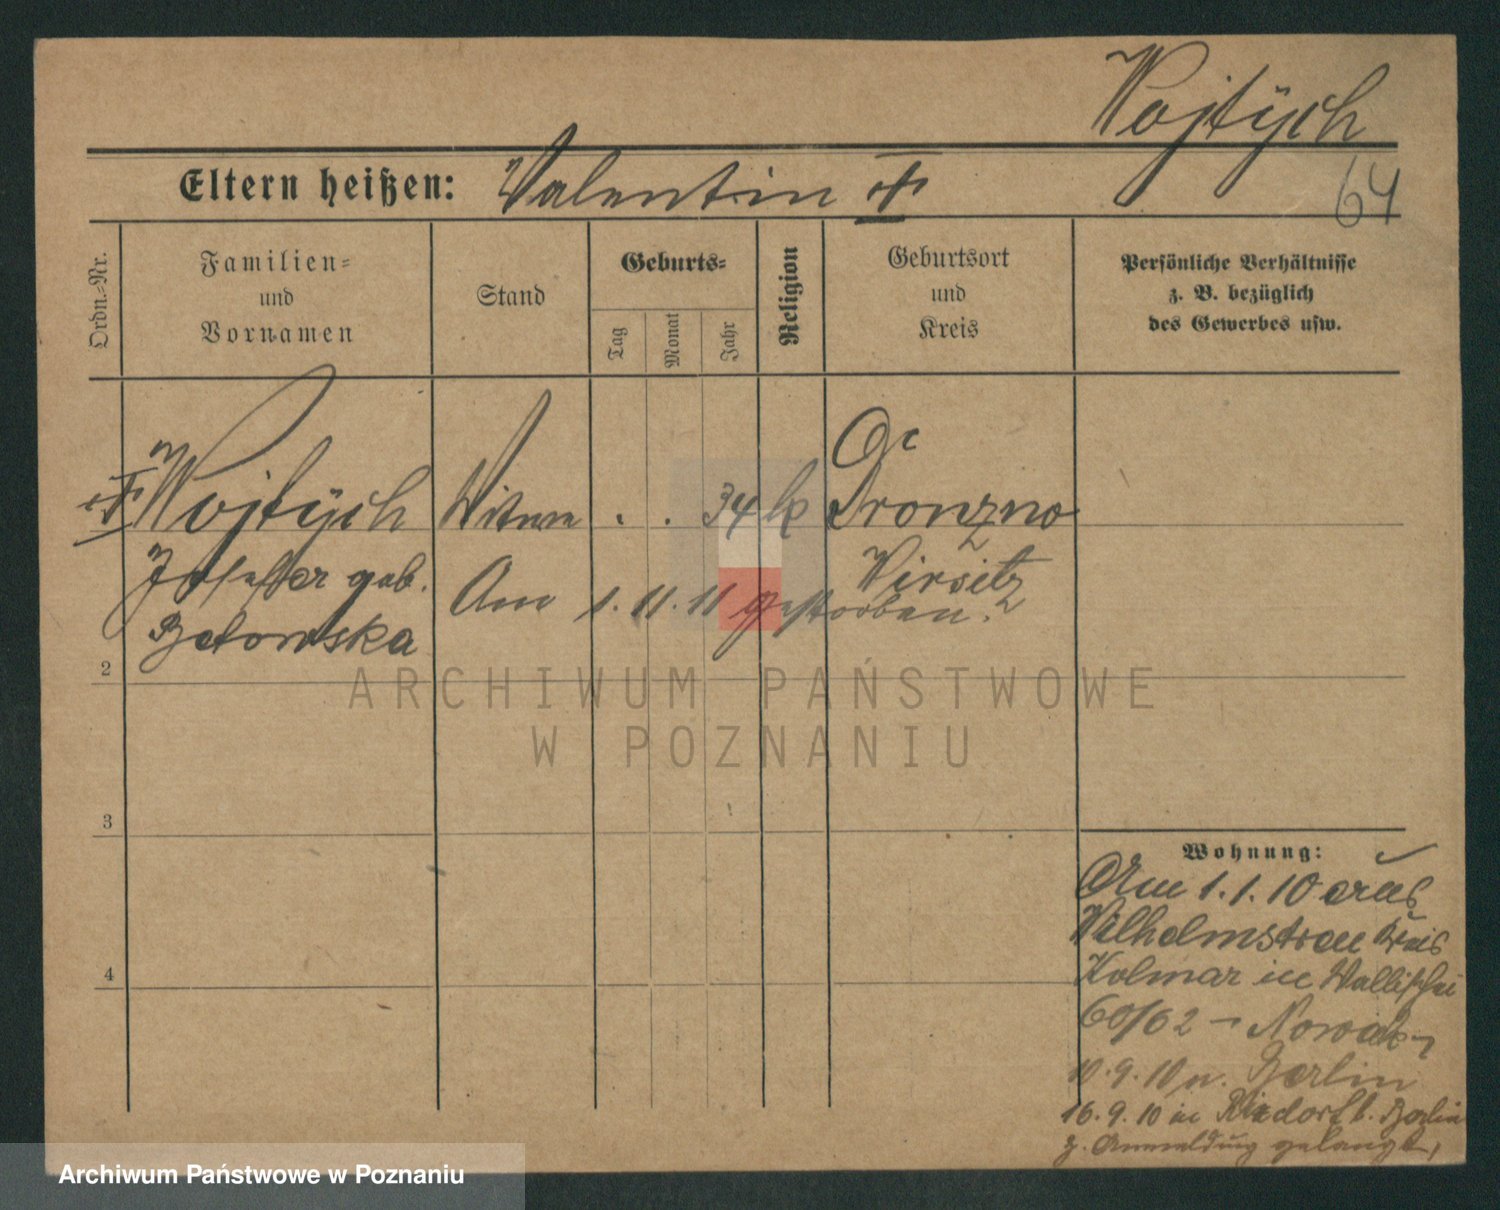 Wojtÿch
64
Eltern heißen: Valentin
Ordn.-Nr.
Familien-
und
Vornamen
Stand
Geburts-
Tag
Monat
Jahr
Religion
Geburtsort
und
Kreis
Persönliche Verhältnisse
z. B. bezüglich
des Gewerbes usw.
Wojtÿch Witwe . . 34 k Dronzno
Josefa geb. Wirsitz
Am 1. 11. 11 gestorben.
2
3
4
Wohnung:
Am 1.1.10 aus
Wilhelmstreu Kreis
Kolmar in Wallischei
60/62 - Nowak -
10.9.10 n. Berlin
16.9.10 in Rixdorf b. Berlin
z. Anmeldung gelangt,
ARCHIWUM PAŃSTWOWE
W POZNANIU
Archiwum Państwowe w Poznaniu